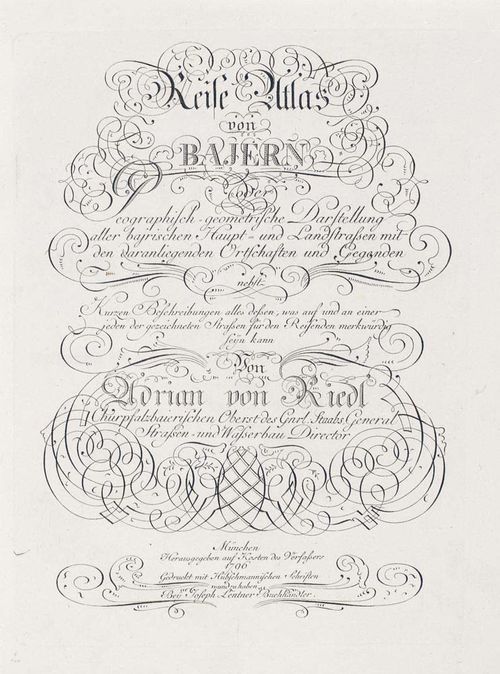 Reise Atlas
von
BAJERN
oder
Geographisch-geometrische Darstellung
aller bajrischen Haupt- und Landstraßen mit
den daranliegenden Ortschaften und Gegenden
nebst
Kurzen Beschreibungen alles deßen, was auf und an einer
jeden der gezeichneten Straßen für den Reisenden merkwürdig
seÿn kann
Von
Adrian von Riedl
Churpfalzbaierischen Oberst des Gnrl. Staabs General
Straßen- und Waßerbau Director
München
Herausgegeben auf Kosten des Verfaßers
1796
Gedruckt mit Hübschmannischen Schriften
und zu haben
Bei Joseph Lentner Buchhändler.